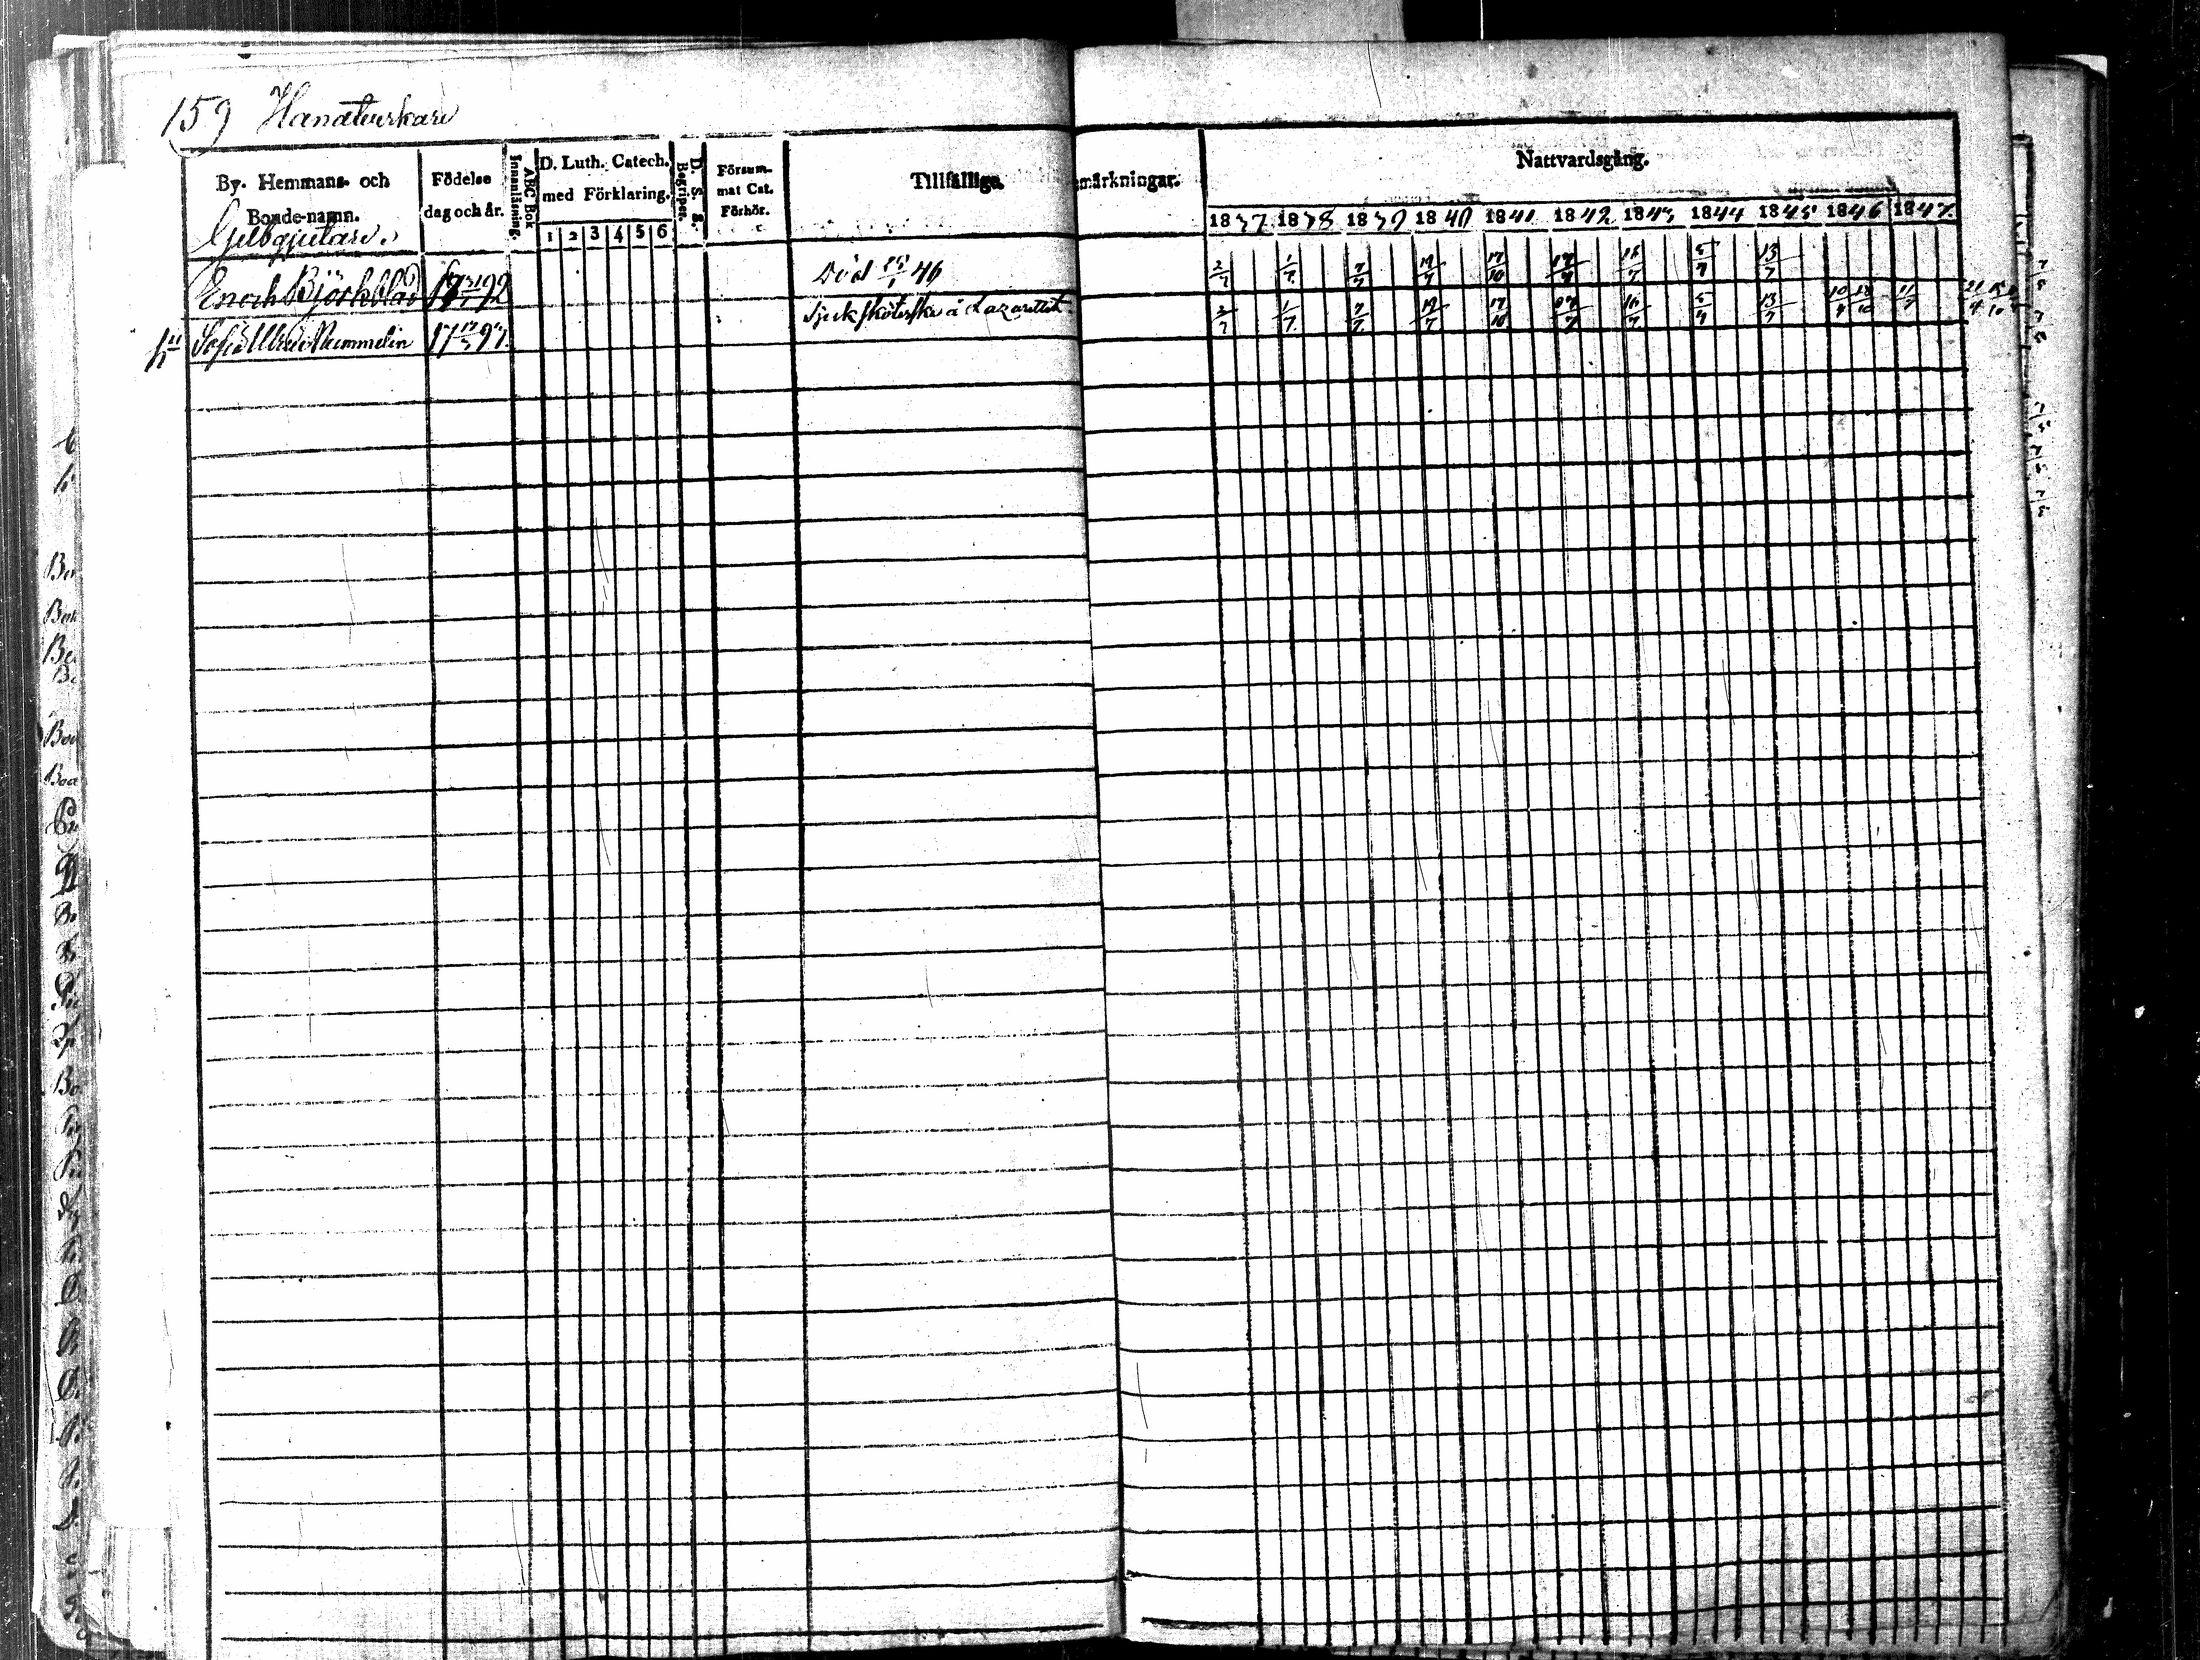 159 Handtverkare
By. Hemmans- och Bonde-namn.
Födelse dag och år.
ABC Bok Innanläsning.
D. Luth. Catech. med Förklaring.
1 2 3 4 5 6
D. S. s. Begriper.
Försummat Cat. Förhör.
Tillfälliga märkningar.
Nattvardsgång.
1837 1838 1839 1840 1841 1842 1843 1844 1845 1846 1847.
Gjelbgjutare.
Enoch Björkblad 17 92 Död 15/1 46 2/7 1/7 7/7 19/7 17/10 17/7 16/7 5/7 13/7
Sofia Ulrica Nummelin 17 97. Sjuksköterska å Lazarettet. 2/7 1/7 7/7 19/7 17/10 16/7 13/7